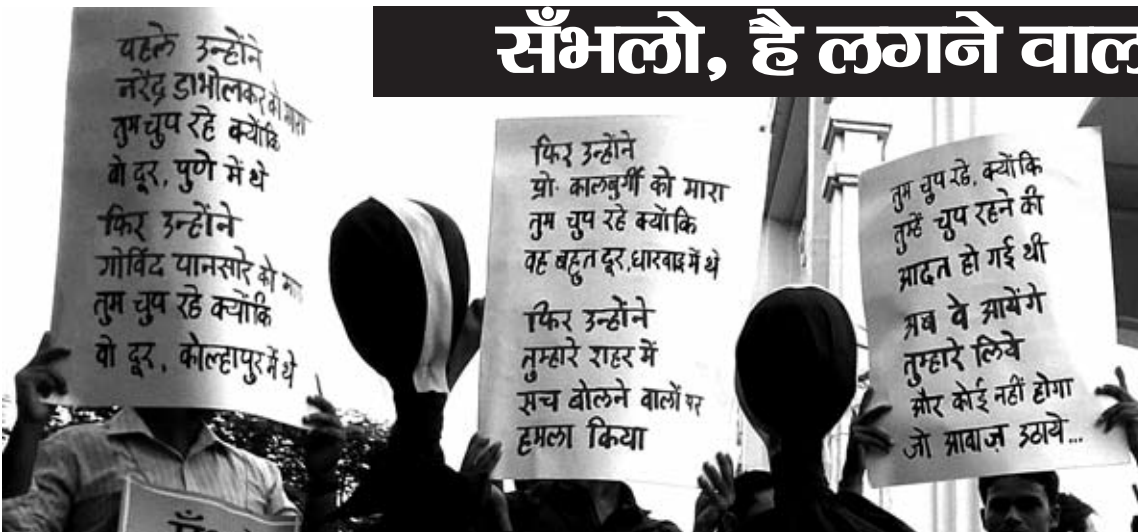 सँभलो, है लगने वाल
पहले उन्होंने
नरेंद्र डाभोलकर को मारा
तुम चुप रहे क्योंकि
वो दूर, पुणे में थे
फिर उन्होंने
गोविंद पानसारे को
तुम चुप रहे क्योंकि
वो दूर, कोल्हापुर में थे
फिर उन्होंने
प्रो. कालबुर्गी को मारा
तुम चुप रहे क्योंकि
वह बहुत दूर, धारवाड में थे
फिर उन्होंने
तुम्हारे शहर में
सच बोलने वालों पर
हमला किया
तुम चुप रहे, क्योंकि
तुम्हें चुप रहने की
आदत हो गई थी
अब वे आयेंगे
तुम्हारे लिये
और कोई नहीं होगा
जो आवाज़ उठाये...